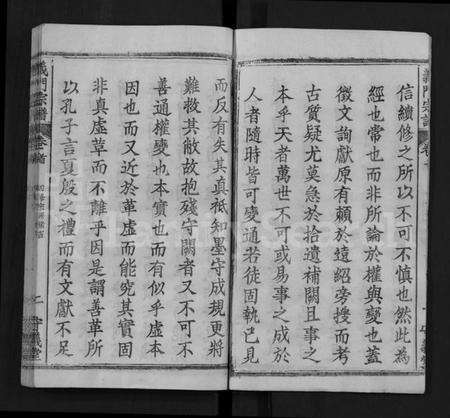 信續修之所以不可不慎也然此為
經也常也而非所論於權與變也蓋
徵文詢獻原有頼於遠紹旁搜而考
古質疑尤莫急於拾遺補闕且事之
本乎天者萬世不可或易事之成於
人者隨時皆可變通若徒固執已見
而反有失其真祇知墨守成規更將
難救其敝故抱殘守闕者又不可不
善通權變也本實也而有似乎虛本
因也而又近於革虛而能究其實固
非真虛革而不離乎因是謂善革所
以孔子言夏殷之禮而有文獻不足
義門宗譜 卷首
二 堂義堂